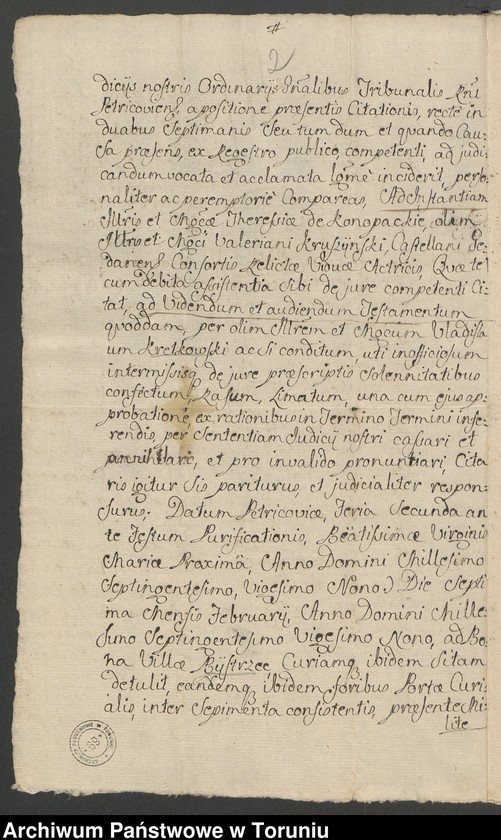 #
2
dicijs nostris Ordinarijs Gñalibus Tribunalis Rni
Petricoviens, a positione præsentis Citationis, recte in
duabus Septimanis Seu tum dum et quando Cau-
sa præsens, ex Regestro publico competenti, ad judi-
candum vocata et acclamata lgme inciderit, perso-
naliter ac peremptorie Compareas, Ad Instantiam
Illris et Mgcæ Theressiæ de Konopackie, olim
Illris et Mgci Valeriani Kruszyński, Castellani Ge-
danens, Consortis Relictæ Viduæ Actricis Quæ te
cum debita assistentia sibi de jure competenti Ci-
tat, ad Videndum et audiendum Testamentum
quoddam, per olim Illrem et Mgcum Vladisla-
um Kretkowski ac si conditum, uti inofficiosum
intermissis, de jure præscriptis Solennitatibus
confectum, Rasum, Limatum, una cum ejus ap-
probatione, ex rationibus in Termino Termini infe-
rendis, per Sententiam Judicij nostri cassari et
annihilari, et pro invalido pronuntiari, Cita-
ris igitur Sis pariturus, et judicialiter respon-
surus. Datum Petricoviæ, Feria Secunda an-
te Festum Purificationis, Beatissimæ Virginis
Mariæ Proxima, Anno Domini Millesimo
Septingentesimo, Vigesimo Nono.) Die Septi-
ma Mensis February, Anno Domini Mille-
simo Septingentesimo Vigesimo Nono, ad Bo-
na Villæ Bystrzec Curiamq ibidem Sitam
detulit, eandemq ibidem, foribus Portæ Curi-
alis, inter Sepimenta consistentis, præsente Mi-
lite
Archiwum Państwowe w Toruniu